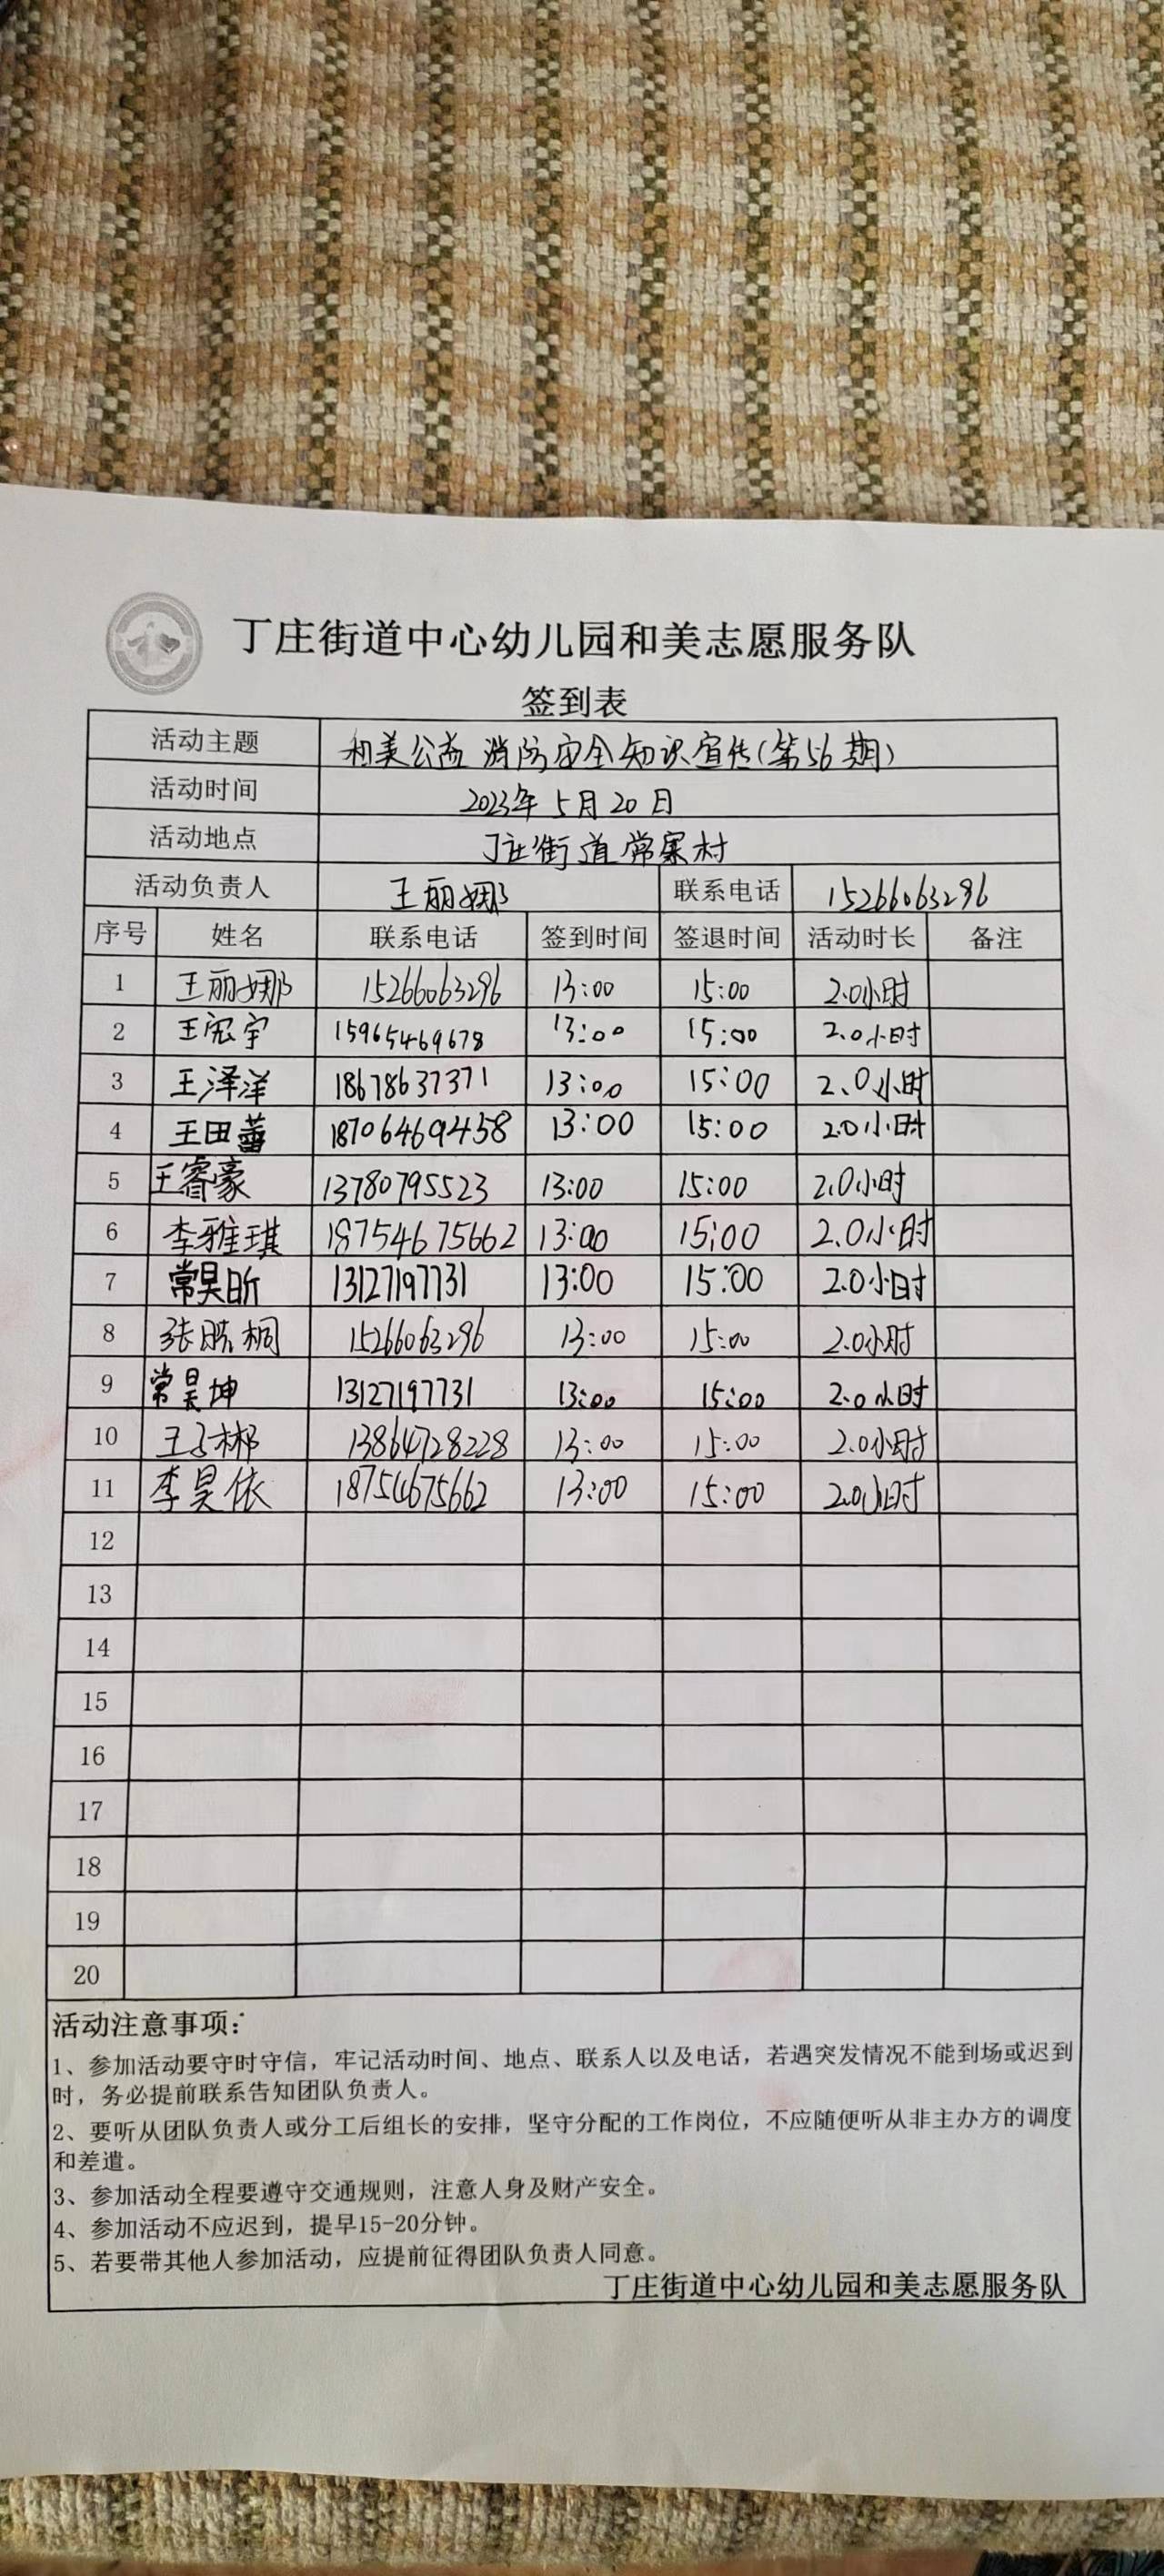 丁庄街道中心幼儿园和美志愿服务队
签到表
活动主题 和美公益 消防安全知识宣传(第56期)
活动时间 2023年5月20日
活动地点 丁庄街道常寨村
活动负责人 王丽娜 联系电话 15266063296
序号 姓名 联系电话 签到时间 签退时间 活动时长 备注
1 王丽娜 15266063296 13:00 15:00 2.0小时
2 王宽宇 15965469678 13:00 15:00 2.0小时
3 王泽洋 18678637371 13:00 15:00 2.0小时
4 王田蕾 18706469458 13:00 15:00 2.0小时
5 王睿豪 13780795523 13:00 15:00 2.0小时
6 李雅琪 18754675662 13:00 15:00 2.0小时
7 常昊昕 13127197731 13:00 15:00 2.0小时
8 张皓桐 15266063296 13:00 15:00 2.0小时
9 常昊坤 13127197731 13:00 15:00 2.0小时
10 王子彬 13864728228 13:00 15:00 2.0小时
11 李昊依 18754675662 13:00 15:00 2.0小时
12
13
14
15
16
17
18
19
20
活动注意事项:
1、参加活动要守时守信，牢记活动时间、地点、联系人以及电话，若遇突发情况不能到场或迟到
时，务必提前联系告知团队负责人。
2、要听从团队负责人或分工后组长的安排，坚守分配的工作岗位，不应随便听从非主办方的调度
和差遣。
3、参加活动全程要遵守交通规则，注意人身及财产安全。
4、参加活动不应迟到，提早15-20分钟。
5、若要带其他人参加活动，应提前征得团队负责人同意。
丁庄街道中心幼儿园和美志愿服务队